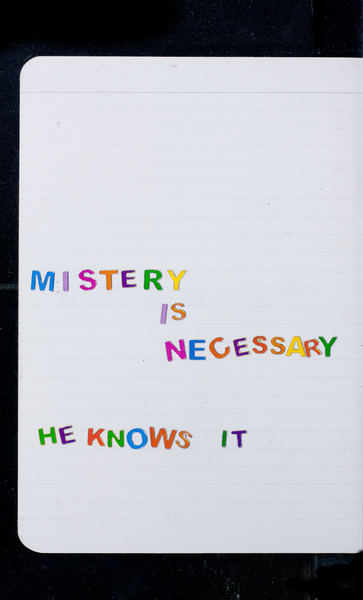 MISTERY
IS
NECESSARY
HE KNOWS IT